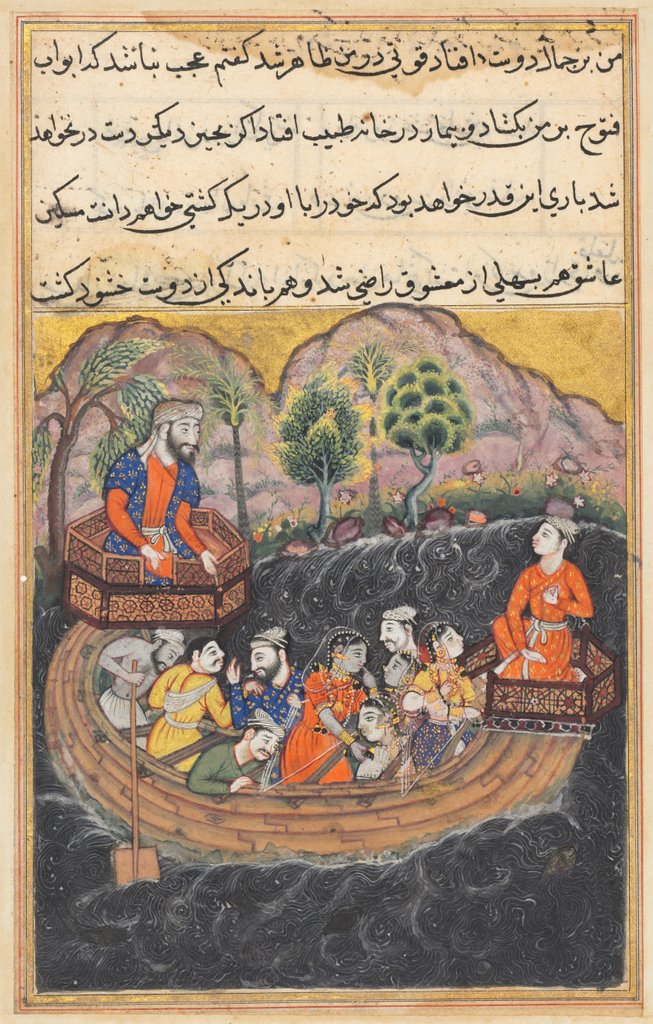 من بر جمال دوست افتاد قوتی در من ظاهر شد گفتم عجب نباشد که ابواب
فتوح بر من بکشاد و بیمار در خانه طبیب افتاد اگر بجین دیگر دست در نخواهد
شد باری این قدر خواهد بود که خود را با او در یک کشتی خواهم دانست مسکین
عاشق هم بسهلی از معشوق راضی شد و هم باندکی از دوست خشنود کشت